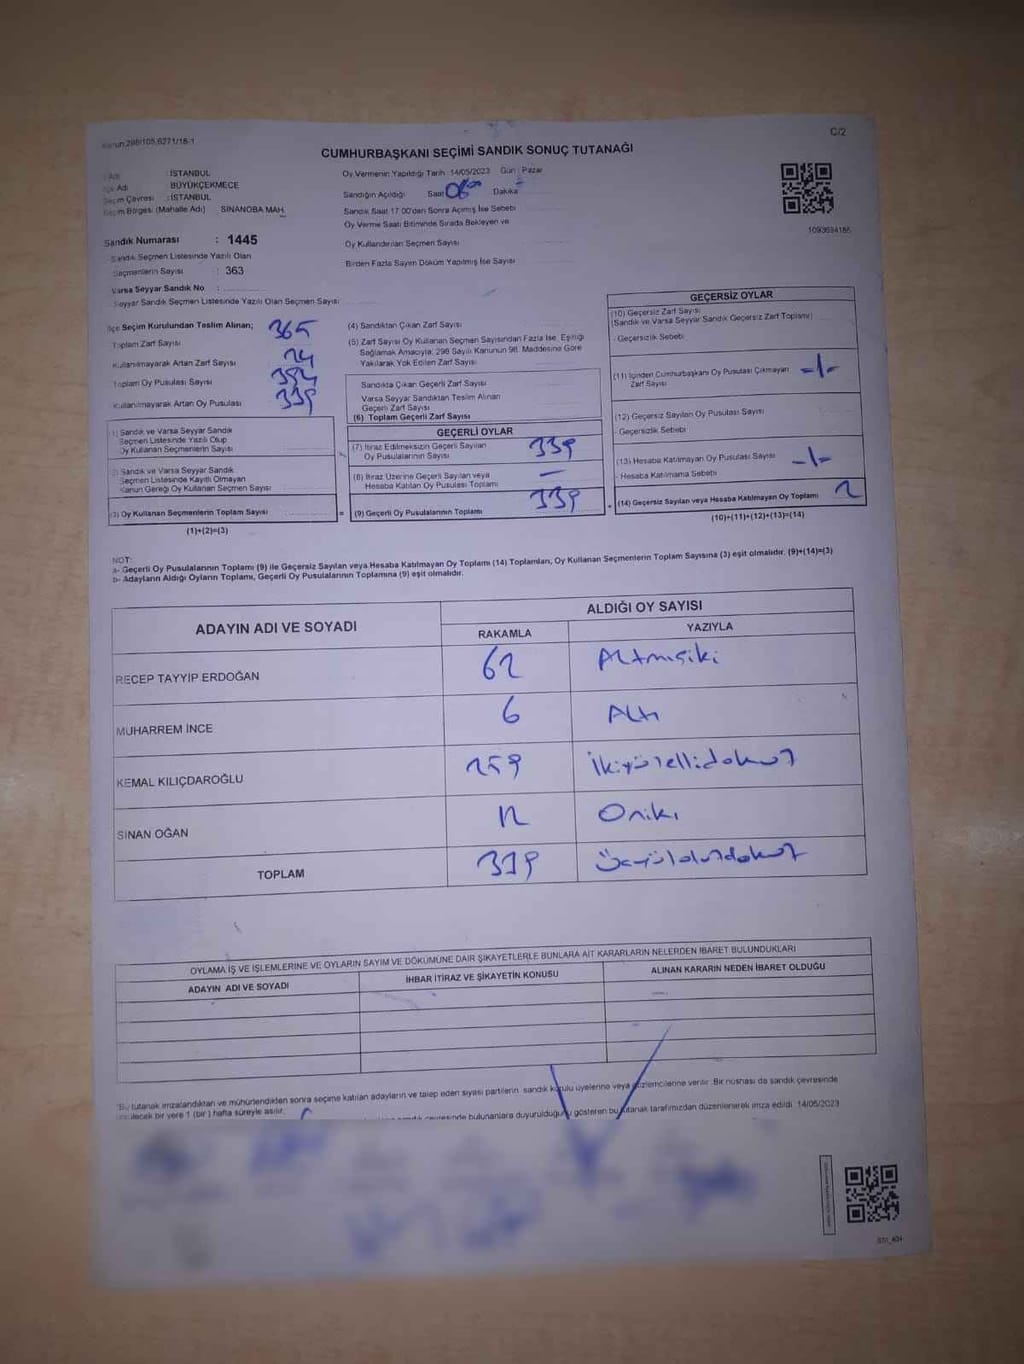 Kanun 298/105,6271/18-1
C/2
CUMHURBAŞKANI SEÇİMİ SANDIK SONUÇ TUTANAĞI
İl Adı : İSTANBUL
İlçe Adı : BÜYÜKÇEKMECE
Seçim Çevresi : İSTANBUL
Seçim Bölgesi (Mahalle Adı) SİNANOBA MAH.
Oy Vermenin Yapıldığı Tarih: 14/05/2023 Gün: Pazar
Sandığın Açıldığı Saat Dakika
Sandık Saat 17.00'den Sonra Açılmış İse Sebebi
Oy Verme Saati Bitiminde Sırada Bekleyen ve
Oy Kullandırılan Seçmen Sayısı
Birden Fazla Sayım Döküm Yapılmış İse Sayısı
1093694186
Sandık Numarası : 1445
Sandık Seçmen Listesinde Yazılı Olan
Seçmenlerin Sayısı : 363
Varsa Seyyar Sandık No :
Seyyar Sandık Seçmen Listesinde Yazılı Olan Seçmen Sayısı
İlçe Seçim Kurulundan Teslim Alınan; 365
Toplam Zarf Sayısı
Kullanılmayarak Artan Zarf Sayısı 24
Toplam Oy Pusulası Sayısı
Kullanılmayarak Artan Oy Pusulası 339
(1) Sandık ve Varsa Seyyar Sandık
Seçmen Listesinde Yazılı Olup
Oy Kullanan Seçmenlerin Sayısı
(2) Sandık ve Varsa Seyyar Sandık
Seçmen Listesinde Kayıtlı Olmayan
Kanun Gereği Oy Kullanan Seçmen Sayısı
(3) Oy Kullanan Seçmenlerin Toplam Sayısı
(1)+(2)=(3)
(4) Sandıktan Çıkan Zarf Sayısı
(5) Zarf Sayısı Oy Kullanan Seçmen Sayısından Fazla İse, Eşitliği
Sağlamak Amacıyla; 298 Sayılı Kanunun 98. Maddesine Göre
Yakılarak Yok Edilen Zarf Sayısı
Sandıkta Çıkan Geçerli Zarf Sayısı
Varsa Seyyar Sandıktan Teslim Alınan
Geçerli Zarf Sayısı
(6) Toplam Geçerli Zarf Sayısı
GEÇERLİ OYLAR
(7) İtiraz Edilmeksizin Geçerli Sayılan
Oy Pusulalarının Sayısı 339
(8) İtiraz Üzerine Geçerli Sayılan veya
Hesaba Katılan Oy Pusulası Toplamı —
(9) Geçerli Oy Pusulalarının Toplamı 339
GEÇERSİZ OYLAR
(10) Geçersiz Zarf Sayısı
(Sandık ve Varsa Seyyar Sandık Geçersiz Zarf Toplamı)
Geçersizlik Sebebi
(11) İçinden Cumhurbaşkanı Oy Pusulası Çıkmayan
Zarf Sayısı -1-
(12) Geçersiz Sayılan Oy Pusulası Sayısı
Geçersizlik Sebebi
(13) Hesaba Katılmayan Oy Pusulası Sayısı -1-
Hesaba Katılmama Sebebi
(14) Geçersiz Sayılan veya Hesaba Katılmayan Oy Toplamı 2
(10)+(11)+(12)+(13)=(14)
NOT:
a- Geçerli Oy Pusulalarının Toplamı (9) ile Geçersiz Sayılan veya Hesaba Katılmayan Oy Toplamı (14) Toplamları, Oy Kullanan Seçmenlerin Toplam Sayısına (3) eşit olmalıdır. (9)+(14)=(3)
b- Adayların Aldığı Oyların Toplamı, Geçerli Oy Pusulalarının Toplamına (9) eşit olmalıdır.
ADAYIN ADI VE SOYADI
ALDIĞI OY SAYISI
RAKAMLA YAZIYLA
RECEP TAYYİP ERDOĞAN 62 Altmışiki
MUHARREM İNCE 6 Altı
KEMAL KILIÇDAROĞLU 259 İkiyüzellidokuz
SİNAN OĞAN 12 Oniki
TOPLAM 339 Üçyüzotuzdokuz
OYLAMA İŞ VE İŞLEMLERİNE VE OYLARIN SAYIM VE DÖKÜMÜNE DAİR ŞİKAYETLERLE BUNLARA AİT KARARLARIN NELERDEN İBARET BULUNDUKLARI
ADAYIN ADI VE SOYADI İHBAR İTİRAZ VE ŞİKAYETİN KONUSU ALINAN KARARIN NEDEN İBARET OLDUĞU
Bu tutanak imzalandıktan ve mühürlendikten sonra seçime katılan adayların ve talep eden siyasi partilerin sandık kurulu üyelerine veya gözlemcilerine verilir. Bir nüshası da sandık çevresinde
bir yere 1 (bir) hafta süreyle asılır.
çevresinde bulunanlara duyurulduğunu gösteren bu tutanak tarafımızdan düzenlenerek imza edildi. 14/05/2023